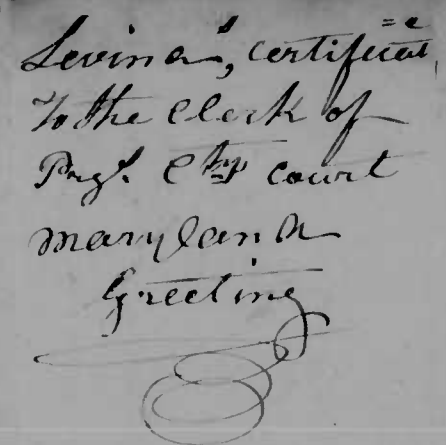 Levina's, certificate
To the Clerk of
Prg's. Cty court
Maryland
Greeting